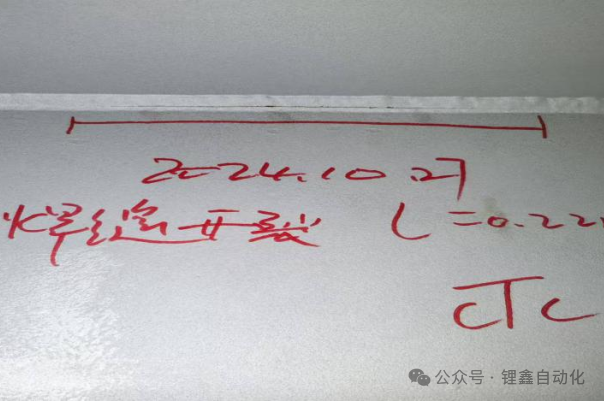 2024.10.27
焊缝开裂 L=0.22
CTC
公众号·锂鑫自动化